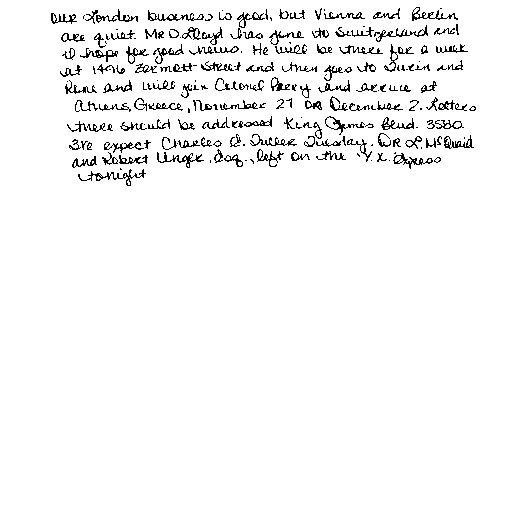 Our London business is good, but Vienna and Berlin
are quiet. Mr. D. Lloyd has gone to Switzerland and
I hope for good news. He will be there for a week
at 1496 Zermott Street and then goes to Turin and
Rome and will join Colonel Parry and arrive at
Athens, Greece, November 27 or December 2. Letters
there should be addressed King James Blvd. 3580
We expect Charles E. Fuller Tuesday. Dr. L. McQuaid
and Robert Unger, Esq., left on the "Y.X." Express
tonight